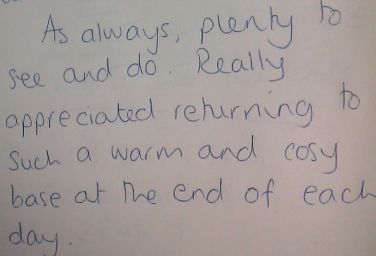 As always, plenty to
see and do. Really
appreciated returning to
such a warm and cosy
base at the end of each
day.